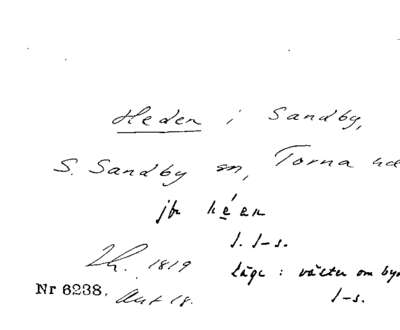 Heden i Sandby,
S. Sandby sn, Torna hd
jfr héen
J. J-s.
Lh. 1819
läge : väster om byn
Nr 6238. Akt 18.
J-s.